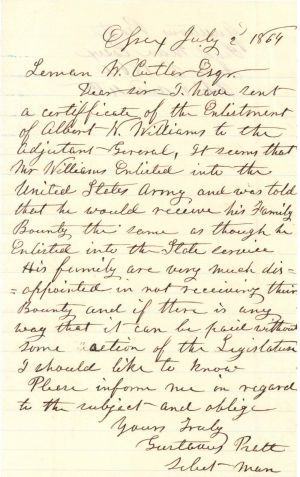 Essex July 2 1864
Leman W. Cutler Esqr.
Dear sir I have sent
a certificate of the Enlistment
of Albert N. Williams to the
Adjutant General, It seems that
Mr Williams Enlisted into the
United States Army and was told
that he would receive his Family
Bounty the same as though he
Enlisted into the State service
His family are very much dis=
=appointed in not receiving their
Bounty and if there is any
way that it can be paid without
some action of the Legislature
I should like to know
Please inform me on regard
to the subject and oblige
Yours Truly
Gustavus Pratt
Select-Man